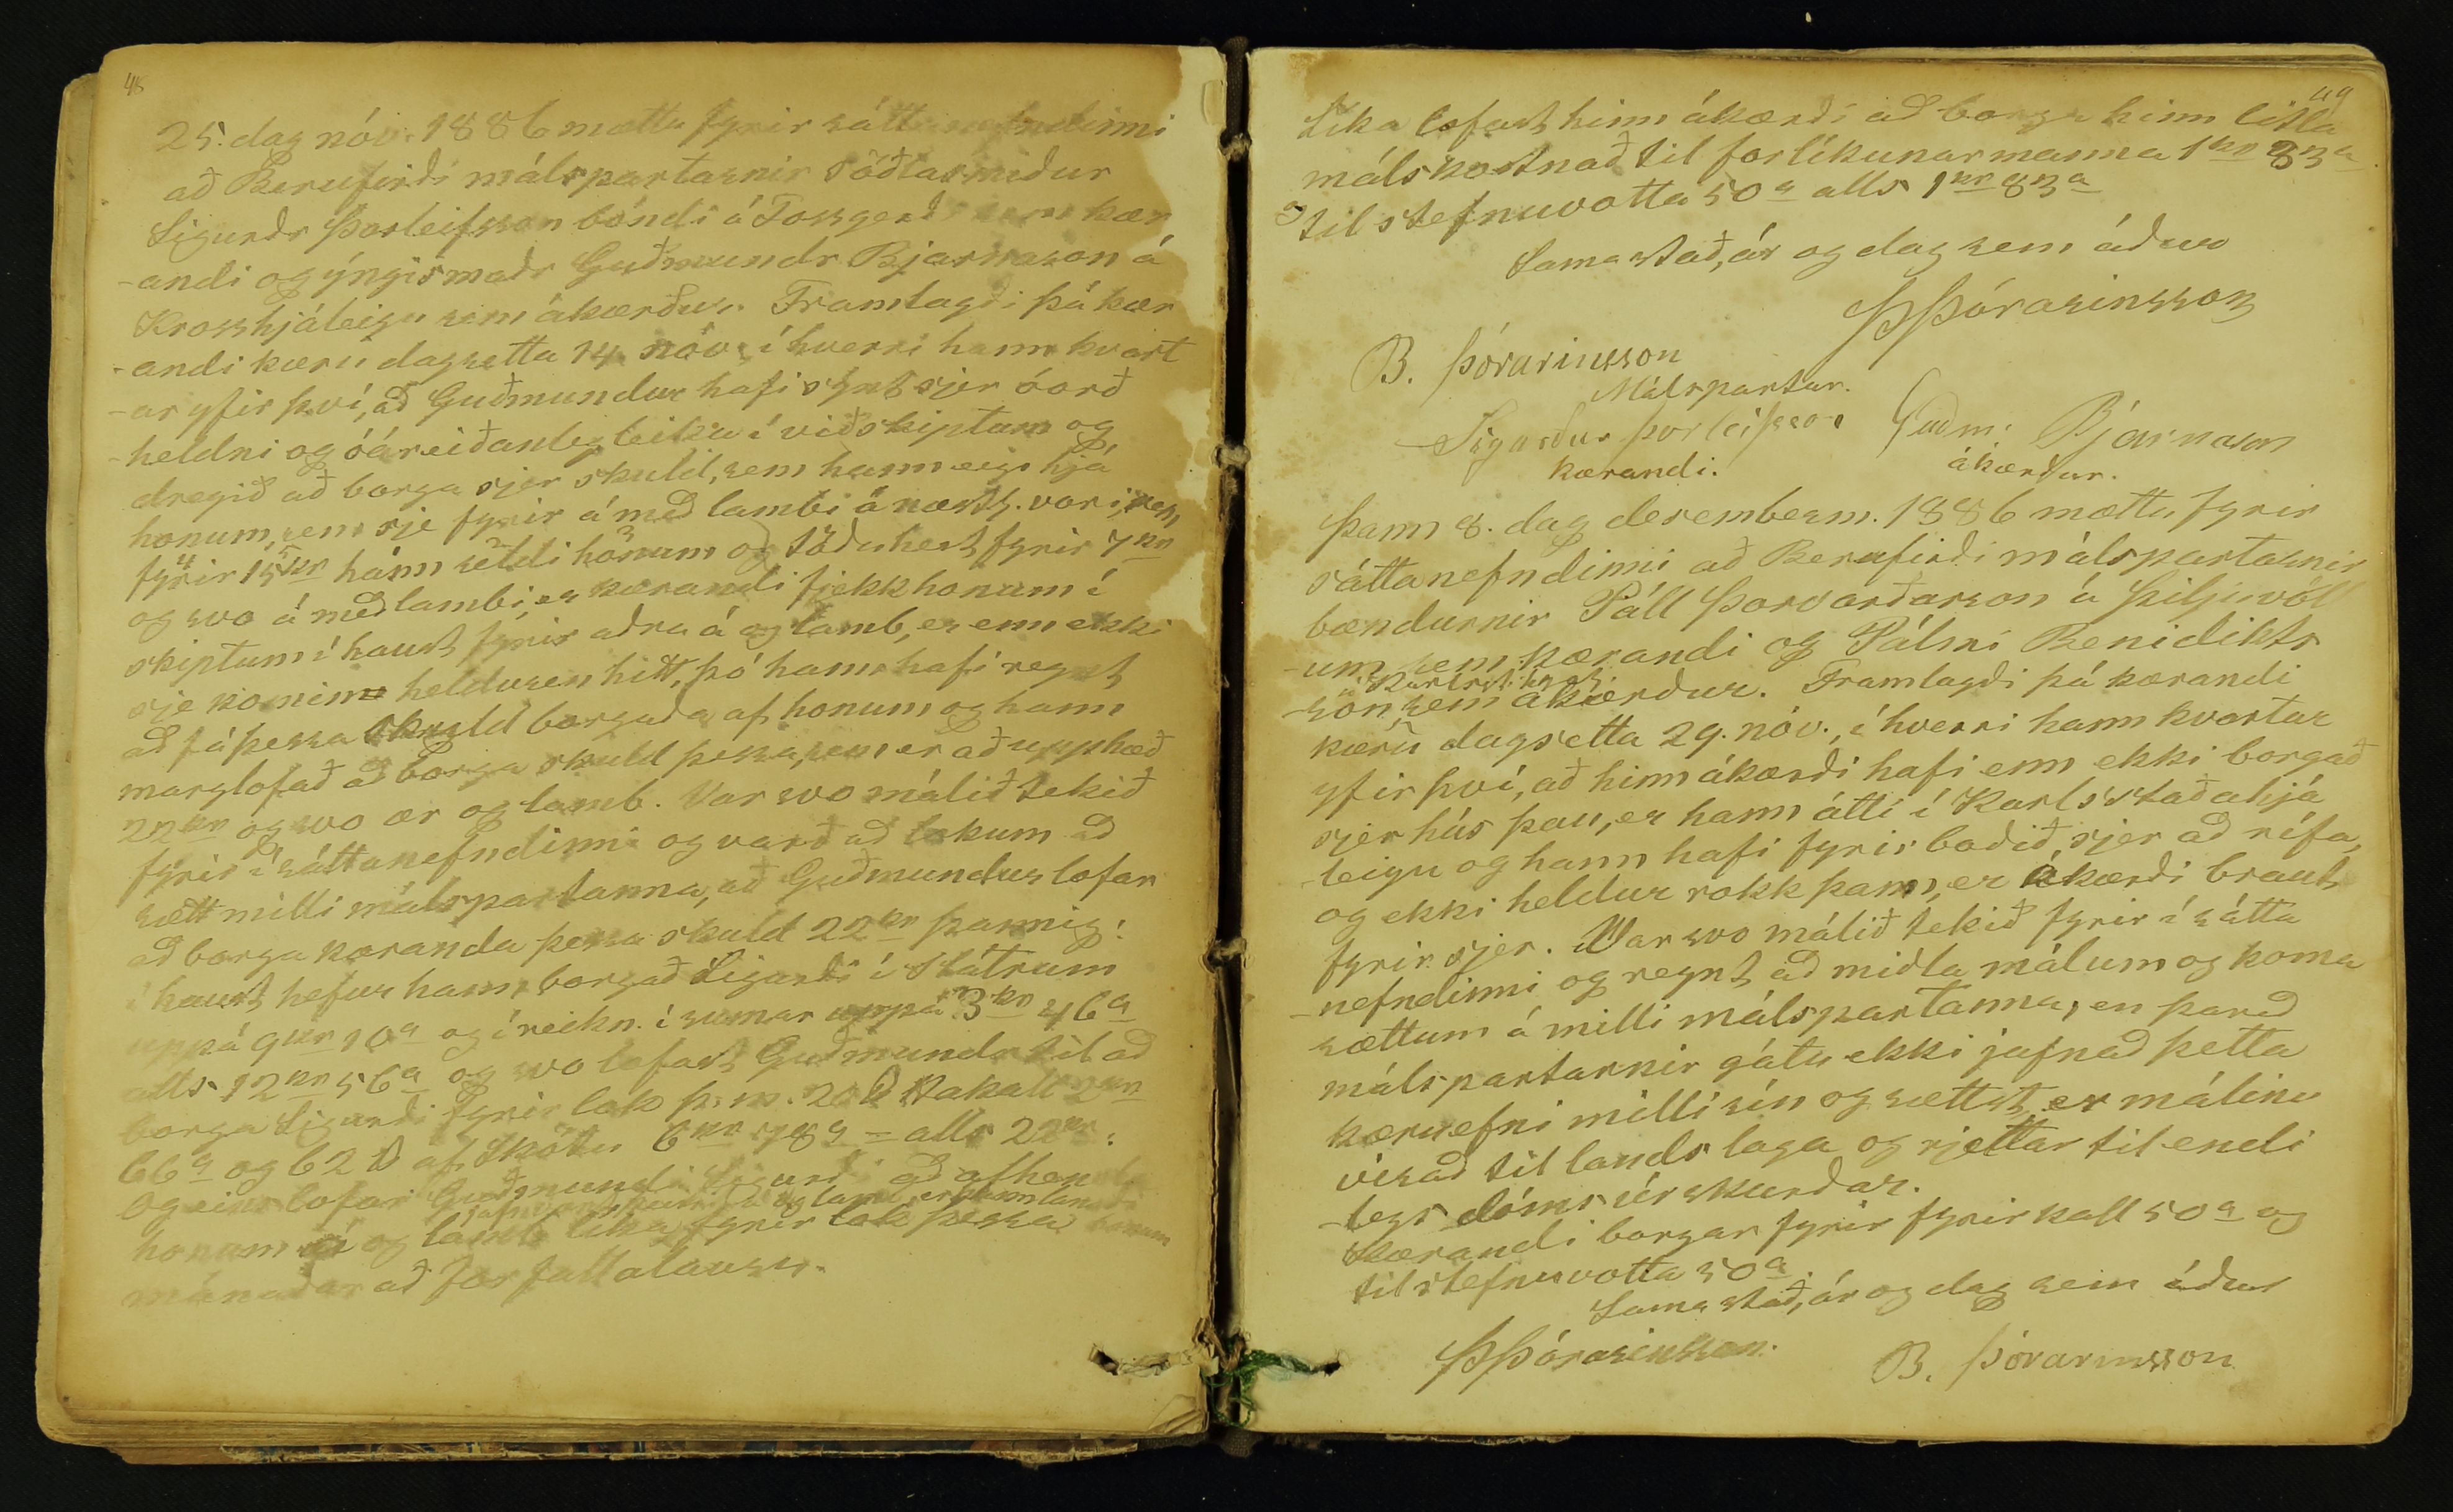 48
25. dag nóv. 1886 mættu fyrir sáttanefndinni
að Berufirði málspartarnir söðlasmiður
Sigurðr Þorleifsson bóndi á Fossgerði sem kær
-andi og ýngismaðr Guðmundr Bjarnason á
Krosshjáleigu sem ákærður. Framlagði þá kær
-andi kæru dagsetta 14. nóv. í hverri hann kvart
-ar yfir því, að Guðmundur hafi sýnt sjer óorð
-heldni og óáreiðanlegleika í viðskiptum og
dregið að borga sjer skuld, sem hann eigi hjá
honum, sem sje fyrir á með lambi á næstl. vori, sem
fyrir 15 kr hann seldi honum og töðuhest fyrir 7 kr
og svo á með lambi, er kærandi fjekk honum í
skiptum í haust fyrir aðra á og lamb, er enn ekki
sje komin heldur en hitt, þó hann hafi reynt
að fá þessa skuld borgaða af honum og hann
marglofað að borga skuld þessa, sem er að upphæð
22 kr og svo ær og lamb. Var svo málið tekið
fyrir í sáttanefndinni og varð að lokum að
sætt milli málspartanna, að Guðmundur lofar
að borga kæranda þessa skuld 22 kr þannig:
í haust hefur hann borgað Sigurði í slátrum
uppá 9 kr 10 a og í reikn. í sumar uppá 3 kr 46 a
alls 12 kr 56 a og svo lofast Guðmundr til að
borga Sigurði fyrir lok þ. m. 20 ℔ Kakall 2 kr
66 a og 62 ℔ af Skötu 6 kr 78 a = alls 22 kr.
og eins lofar Guðmundr Sigurði að afhenda
og lamb, er hann lánaði
honum á og lamb líka fyrir lok þessa honum
mánaðar að forfallalausu.
49
Líka lofast hinn ákærði að borga hinn litla
málskostnað til forlíkunarmanna 1 kr 33 a
og til stefnuvotta 50 a alls 1 kr 83 a
Sama stað, ár og dag sem áður
ÞÞórarinsson
B. Þórarinsson
Málspartar.
Sigurður Þorleifsson Guðm. Bjarnason
kærandi. ákærður.
Þann 8. dag desemberm. 1886 mættu fyrir
sáttanefndinni að Berufirði málspartarnir
bændurnir Páll Þorvarðarson á Þiljuvöll
-um sem kærandi og Pálmi Benidikts
á Karlsst.hjál.
-son, sem ákærður. Framlagði þá kærandi
kæru dagsetta 29. nóv., í hverri hann kvartar
yfir því, að hinn ákærði hafi enn ekki borgað
sjer hús þau, er hann átti í Karlsstaðahjá
-leigu og hann hafi fyrir boðið sjer að rífa,
og ekki heldur rokk þann, er ákærði braut
fyrir sjer. Var svo málið tekið fyrir í sátta
-nefndinni og reynt að miðla málum og koma
sættum á milli málspartanna, en það
málspartarnir gátu ekki jafnað þetta
kæruefni milli sín og sættst er málinu
vísað til lands laga og rjettar til endi
-legs dóms úrskurðar.
Kærandi borgar fyrir fyrirkall 50 a og
til stefnuvotta 50 a.
Sama stað, ár og dag sem áður
ÞÞórarinsson. B. Þórarinsson